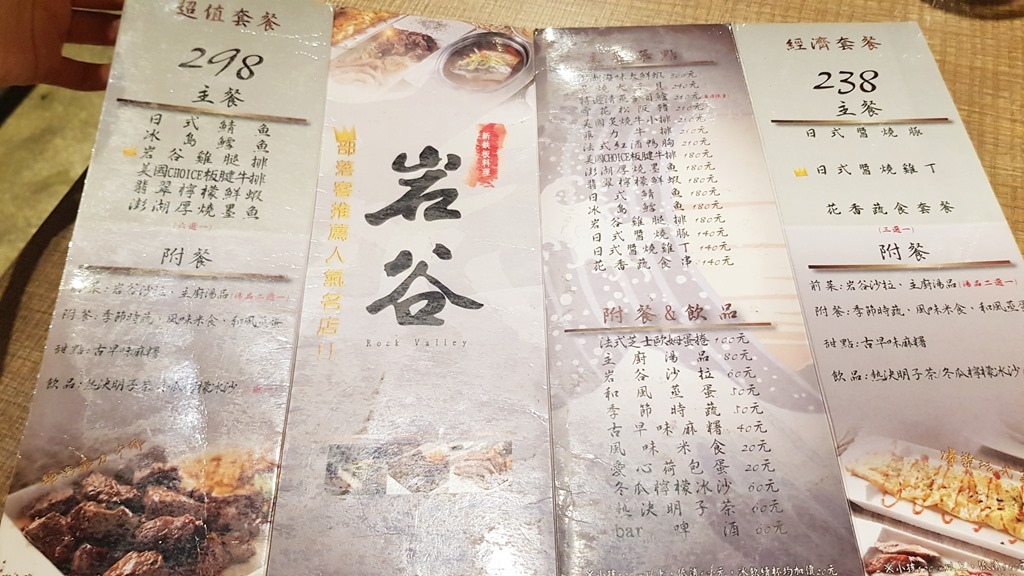 超值套餐
298
主餐
日式鯖魚
冰島鱈魚
岩谷雞腿排
美國CHOICE板腱牛排
翡翠檸檬鮮蝦
澎湖厚燒墨魚
(六選一)
附餐
前菜:岩谷沙拉、主廚湯品(湯品二選一)
附餐:季節時蔬、風味米食、和風蒸蛋
甜點:古早味麻糬
飲品:熱決明子茶、冬瓜檸檬冰沙
部落客推薦人氣名店!!
新鉄板料理
岩谷
Rock Valley
210元
法式紅酒鴨胸 210元
美國CHOICE板腱牛排 180元
澎湖厚燒墨魚 180元
翡翠檸檬鮮蝦 180元
日式鯖魚 180元
冰島鱈魚 180元
岩谷雞腿排 180元
日式醬燒豚 140元
日式醬燒雞丁 140元
花香蔬食串 140元
附餐&飲品
法式芝士歐姆蛋捲 100元
主廚湯品 80元
岩谷沙拉 60元
和風蒸蛋 50元
季節時蔬 50元
古早味麻糬 40元
風味米食 20元
愛心荷包蛋 20元
冬瓜檸檬冰沙 60元
熱決明子茶 60元
bar 啤酒 60元
經濟套餐
238
主餐
日式醬燒豚
日式醬燒雞丁
花香蔬食套餐
(三選一)
附餐
前菜:岩谷沙拉、主廚湯品(湯品二選一)
附餐:季節時蔬、風味米食、和風蒸蛋
甜點:古早味麻糬
飲品:熱決明子茶、冬瓜檸檬冰沙